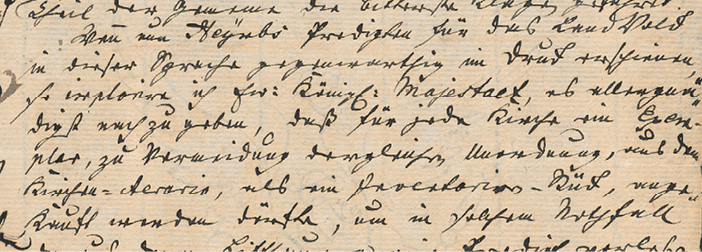 Theil der Gemeine die bitterste Klage geführet.
Wenn nun Heyrbs Predigten für das Land Volck
in dieser Sprache gegenwärthig im Druck erschienen,
so implorire ich Ew: Königl: Majestaet, es allergnä¬
digst nachzugeben, daß für jede Kirche ein Exem¬
plar, zu Vermeidung dergleichen Unordnung, aus dem
Kirchen-Aerario, als ein Inventarien-Stück, ange¬
kaufft werden dörffte, um in solchem Nothfall